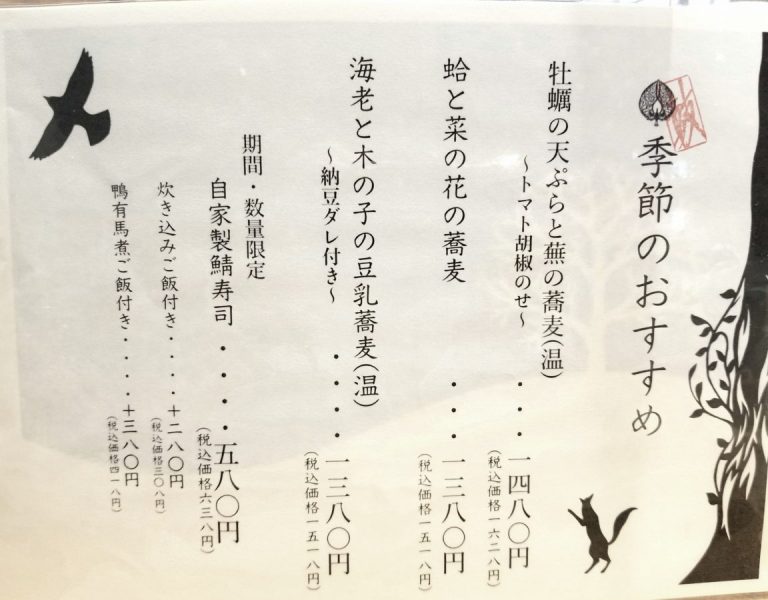 季節のおすすめ
牡蠣の天ぷらと蕪の蕎麦(温)
〜トマト胡椒のせ〜
・・・一四八〇円
(税込価格一六二八円)
蛤と菜の花の蕎麦
・・・一三八〇円
(税込価格一五一八円)
海老と木の子の豆乳蕎麦(温)
〜納豆ダレ付き〜
・・・・一三八〇円
(税込価格一五一八円)
期間・数量限定
自家製鯖寿司・・・・五八〇円
(税込価格六三八円)
炊き込みご飯付き・・・・+二八〇円
(税込価格三〇八円)
鴨有馬煮ご飯付き・・・・+三八〇円
(税込価格四一八円)